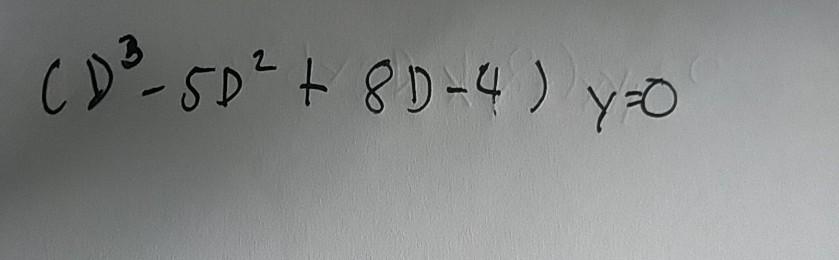 (D³-5D²+8D-4) y=0